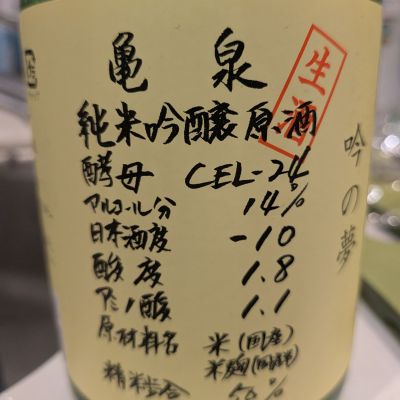 亀泉
生酒
純米吟醸原酒
吟の夢
酵母 CEL-24
アルコール分 14%
日本酒度 -10
酸度 1.8
アミノ酸 1.1
原材料名 米(国産)
米麹(国産米)
精米歩合 50%